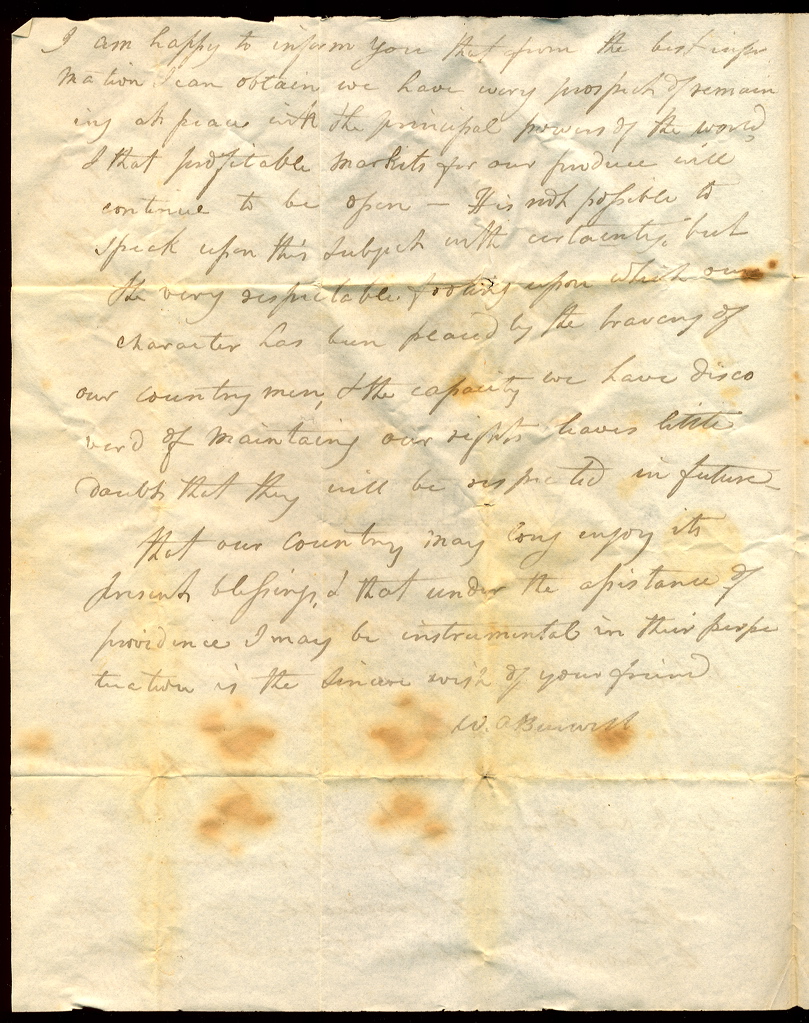 I am happy to inform you that from the best infor
mation I can obtain we have every prospect of remain
ing at peace with the principal powers of the world,
& that profitable markets for our produce will
continue to be open — It is not possible to
speak upon this subject with certainty, but
the very respectable footing upon which our
character has been placed by the bravery of
our country men, & the capacity we have disco
verd of maintaing our rights leaves little
doubt that they will be respected in future—
that our Country may long enjoy its
present blessings, & that under the assistance of
providence I may be instrumental in their perpe
tuation is the sincere wish of your friend
W. A Burwell